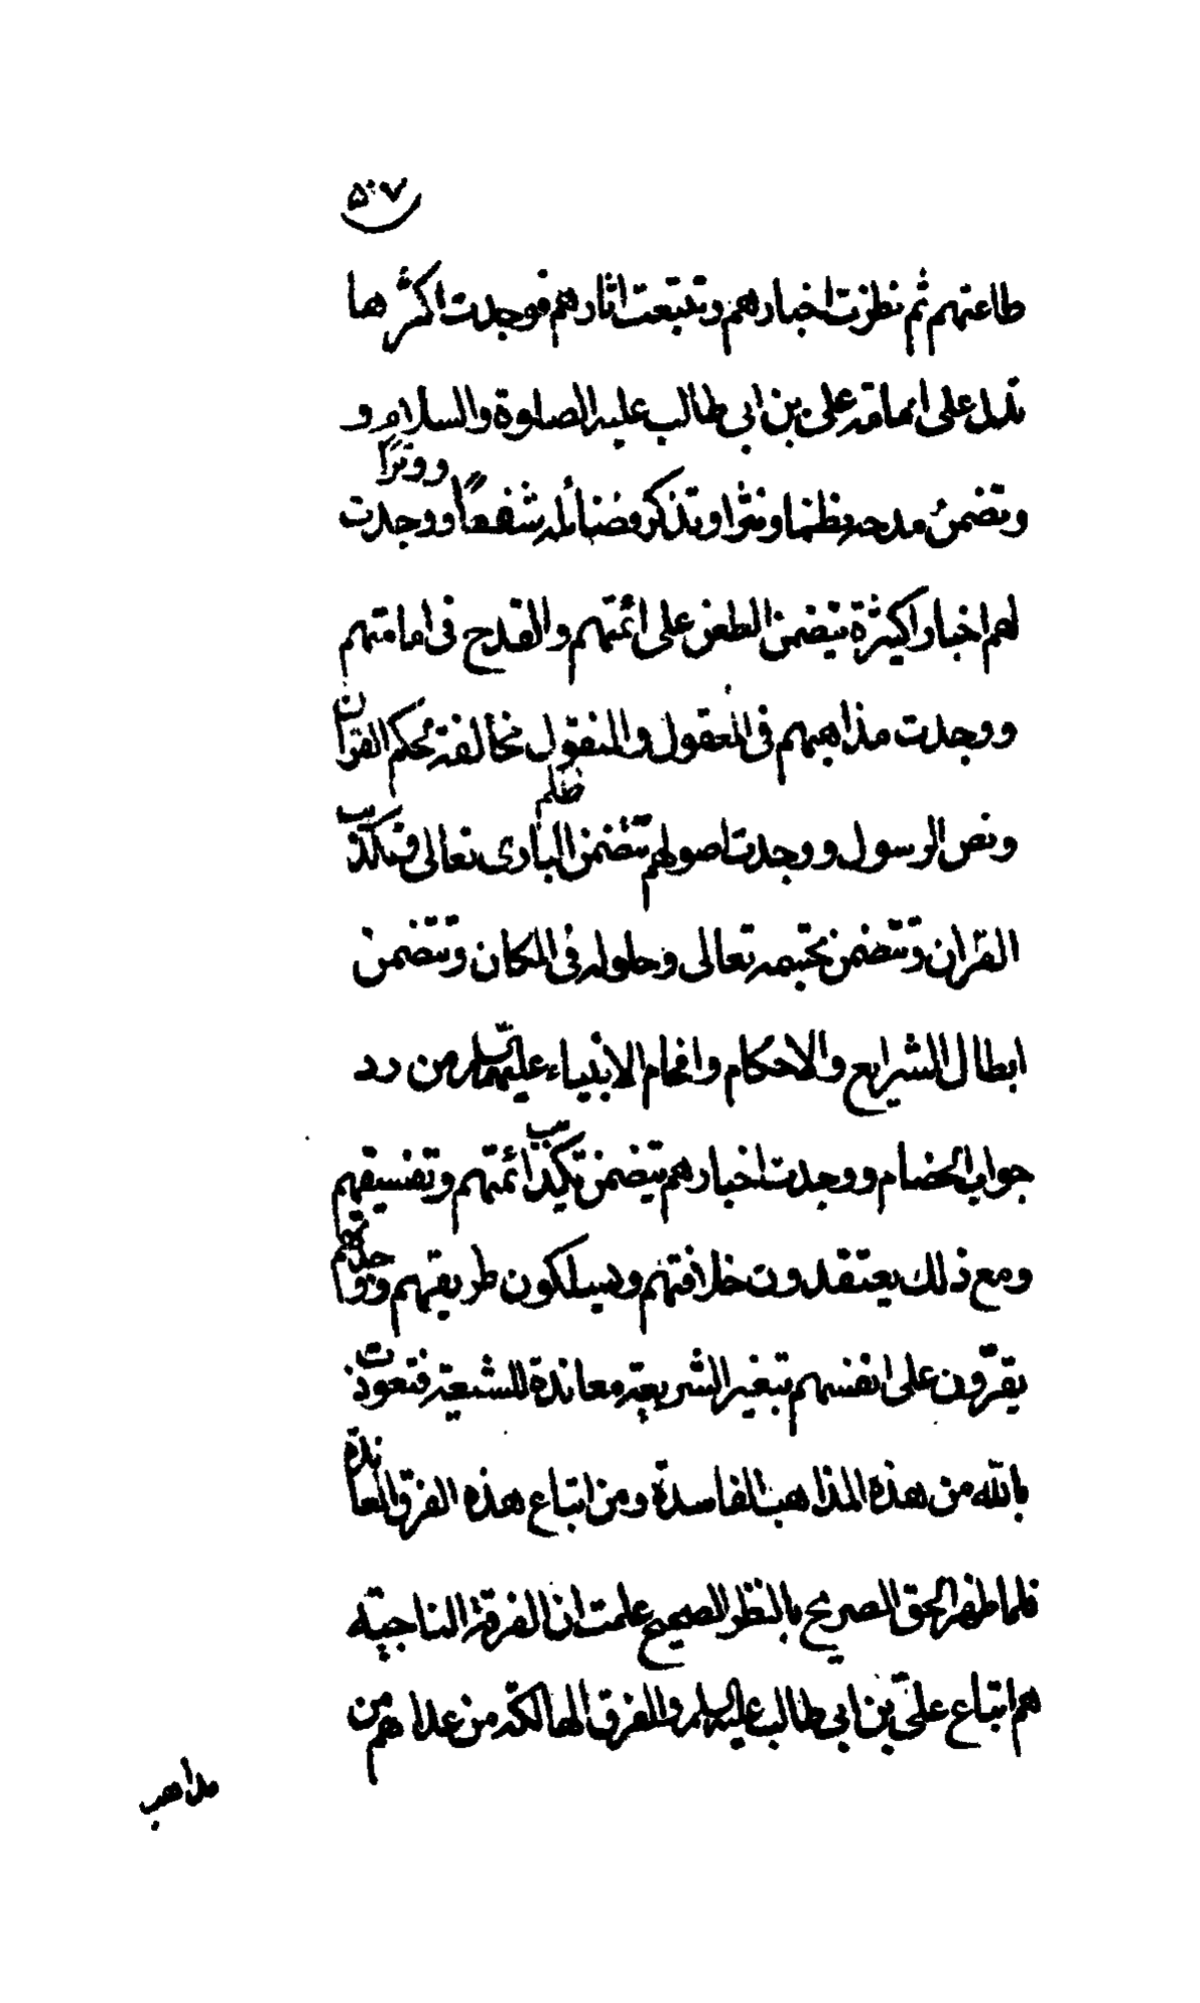 ٥٠٧
طاعتهم ثم نظرت اخبارهم وتتبعت اثارهم فوجدت اكثرها
تدل على امامة على بن ابي طالب عليه الصلوة والسلام و
وتضمن مدحه نظما ونثرا وتذكر فضائله شفعاً ووتراً ووجدت
لهم اخبارا كثيرة تتضمن الطعن على ائمتهم والقدح في امامتهم
ووجدت مذاهبهم في المعقول والمنقول مخالفة لمحكم القران
ونص الرسول ووجدت اصولهم تتضمن ظلم البارى تعالى وتكذيب
القران وتتضمن تجسيمه تعالى وحلوله في المكان وتتضمن
ابطال الشرايع والاحكام وافحام الانبياء عليهم السلم من رد
جواب الخصام ووجدت اخبارهم تتضمن تكذيب ائمتهم وتفسيقهم
ومع ذلك يعتقدون خلافتهم ويسلكون طريقهم
يقرّون على انفسهم بتغير الشريعة معاندة للشيعة فتعوذت
بالله من هذه المذاهب الفاسدة ومن اتباع هذه الفرق المعاندة
فلما ظهر الحق الصريح بالنظر الصحيح علمت ان الفرقة الناجية
هم اتباع علىّ بن ابي طالب عليه السلم والفرق الهالكة من عداهم من
مذاهب